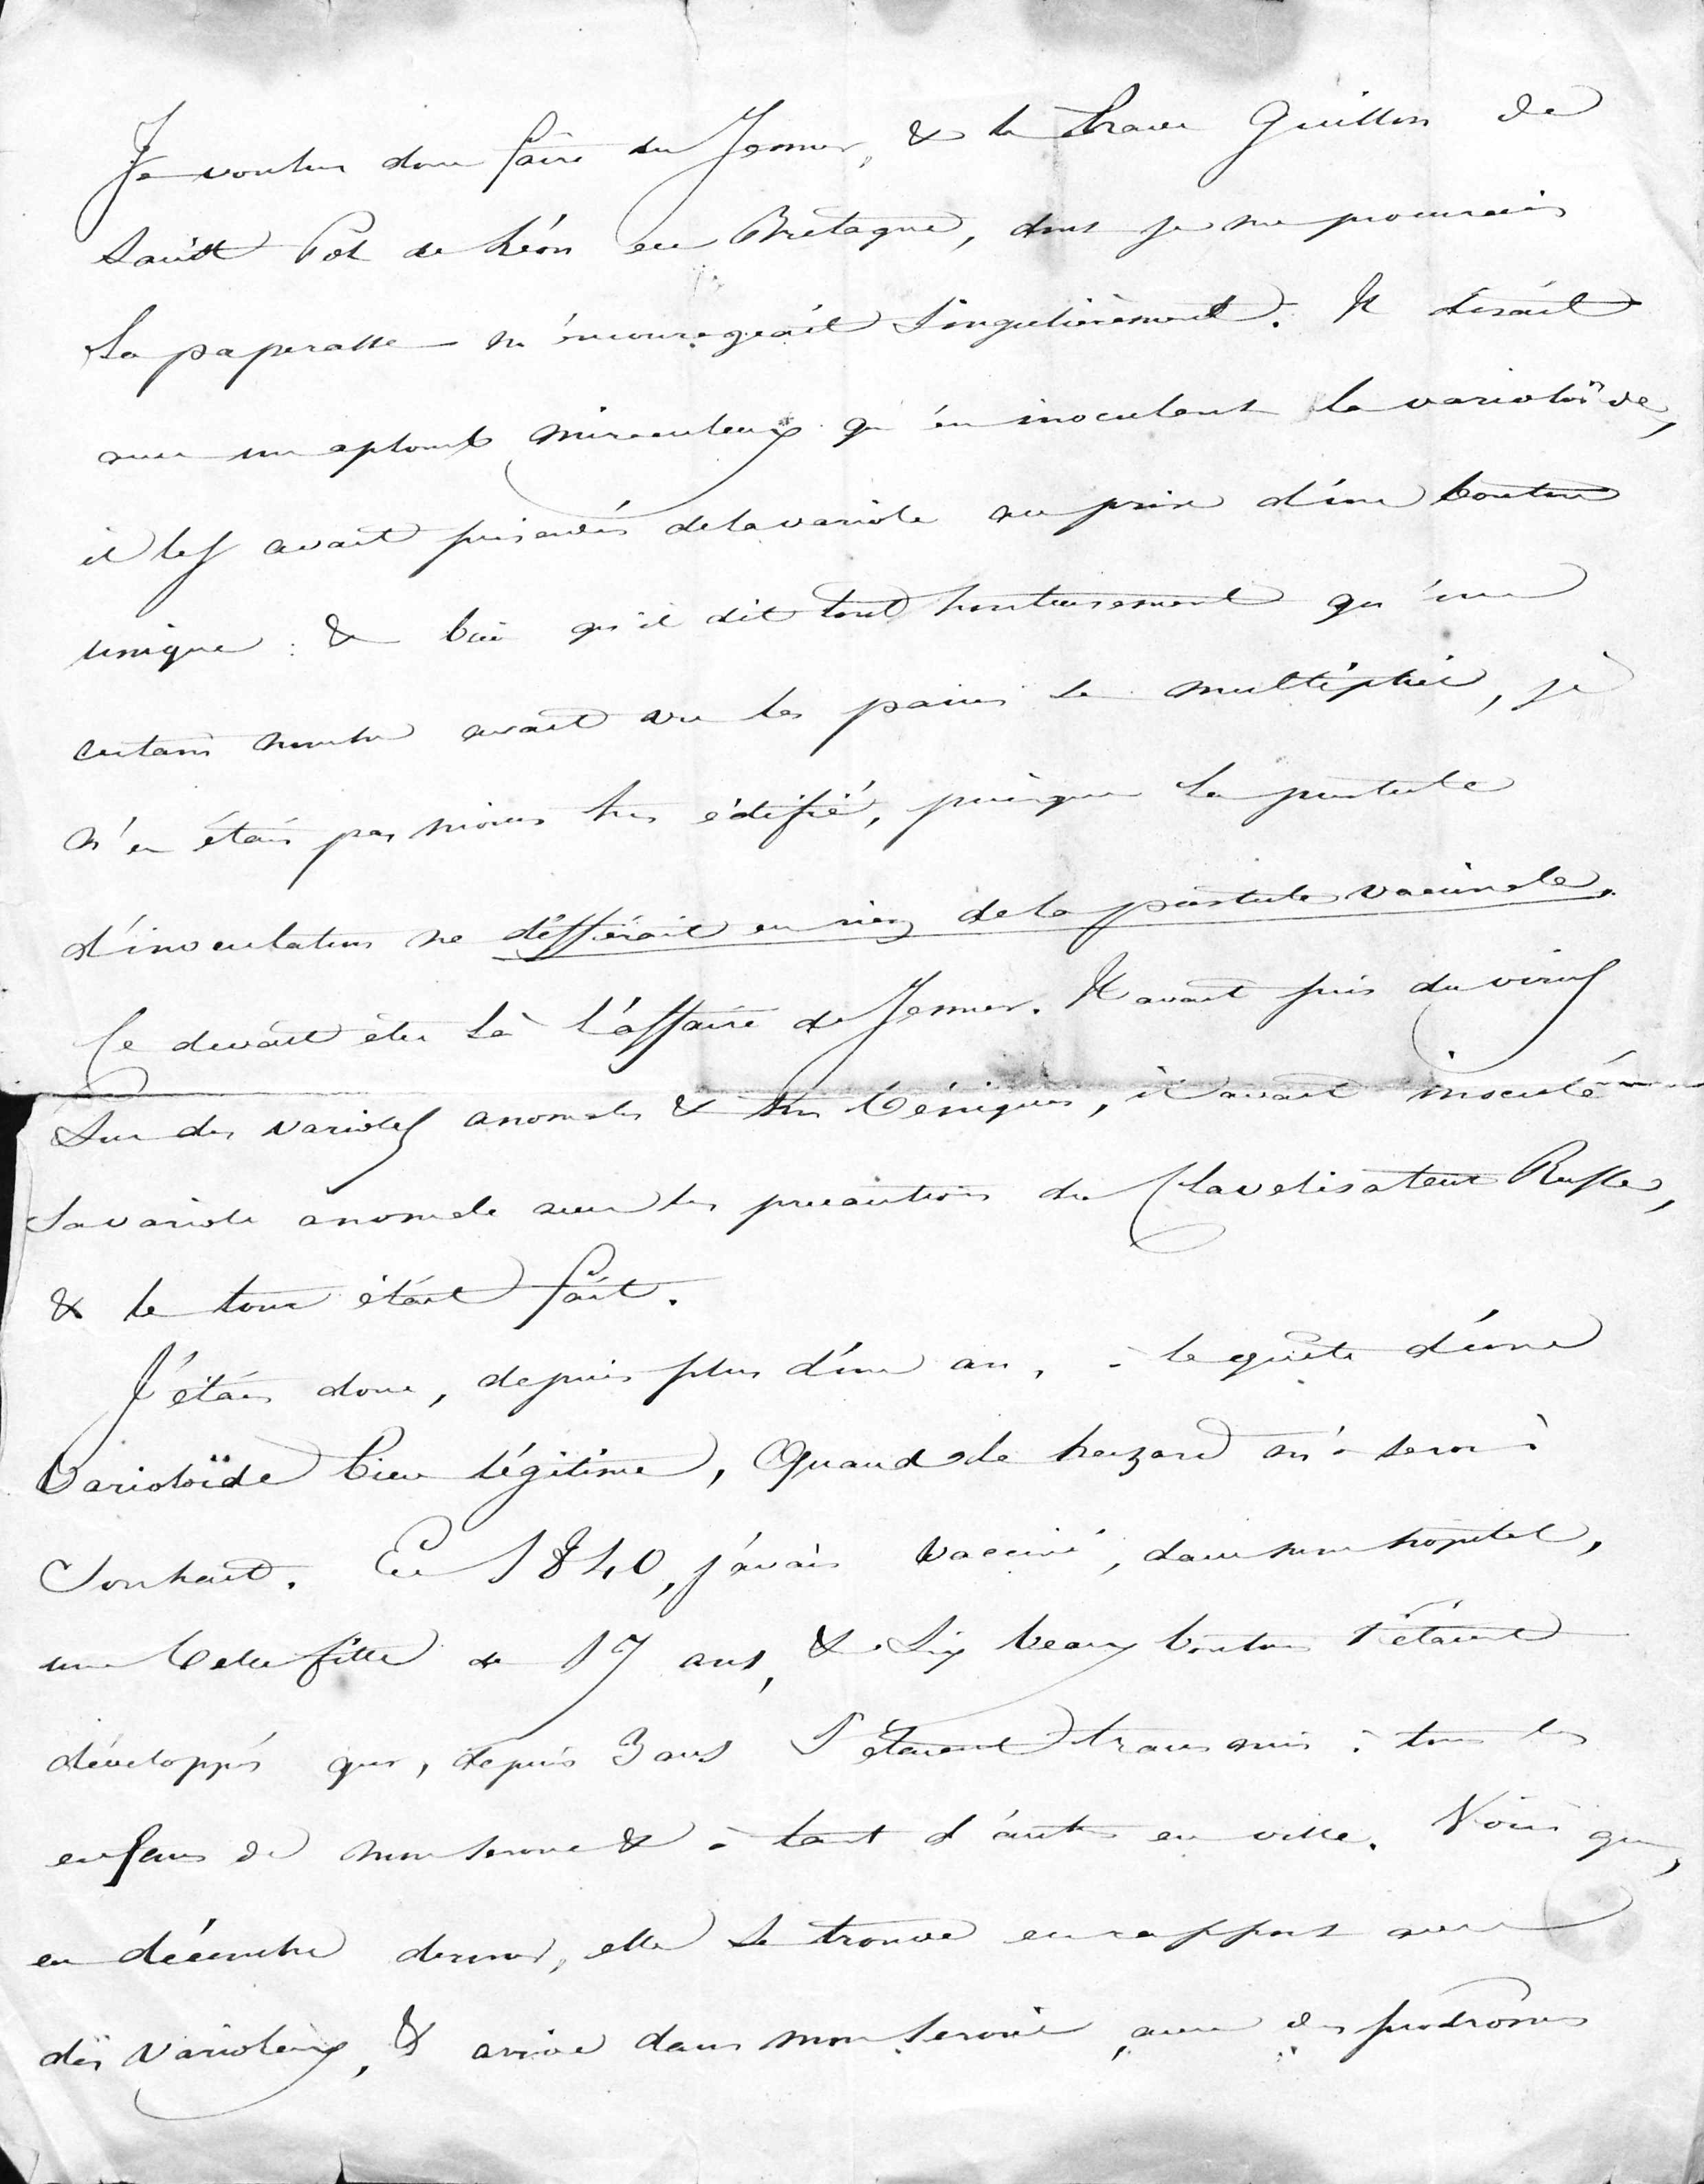 Je voulus donc faire du Jenner, & le brave Guillon de
Saint Pol de Léon en Bretagne, dont je me procurais
la paperasse m'encourageait singulièrement. Il disait
avec un aplomb miraculeux qu'en inoculant la varioloïde,
il les avait préservés de la variole au prix d'un bouton
unique : & bien qu'il dit tout honteusement qu'un
certain nombre avait vu les pains se multiplier, je
n'en étais pas moins très édifié, puisque la pustule
d'inoculation ne différait en rien de la pustule vaccinale.
Ce devait être là l'affaire de Jenner. Il avait pris du virus
sur des varioles anomales & très bénignes, il avait inoculé
la variole anomale avec les précautions du Clavelisateur
& le tour était fait.
J'étais donc, depuis plus d'un an, à la quête d'une
varioloïde bien légitime, quand le hazard m'a servi à
souhait. En 1840, j'avais vacciné, dans mon hôpital,
une belle fille de 17 ans, & six beaux boutons s'étaient
développés qui, depuis 3 ans s'étaient transmis à tous les
enfans de mon service & à tant d'autres en ville. Voici que,
en décembre dernier, elle se trouve en rapport avec
des varioleux, & arrive dans mon service, avec des prodromes